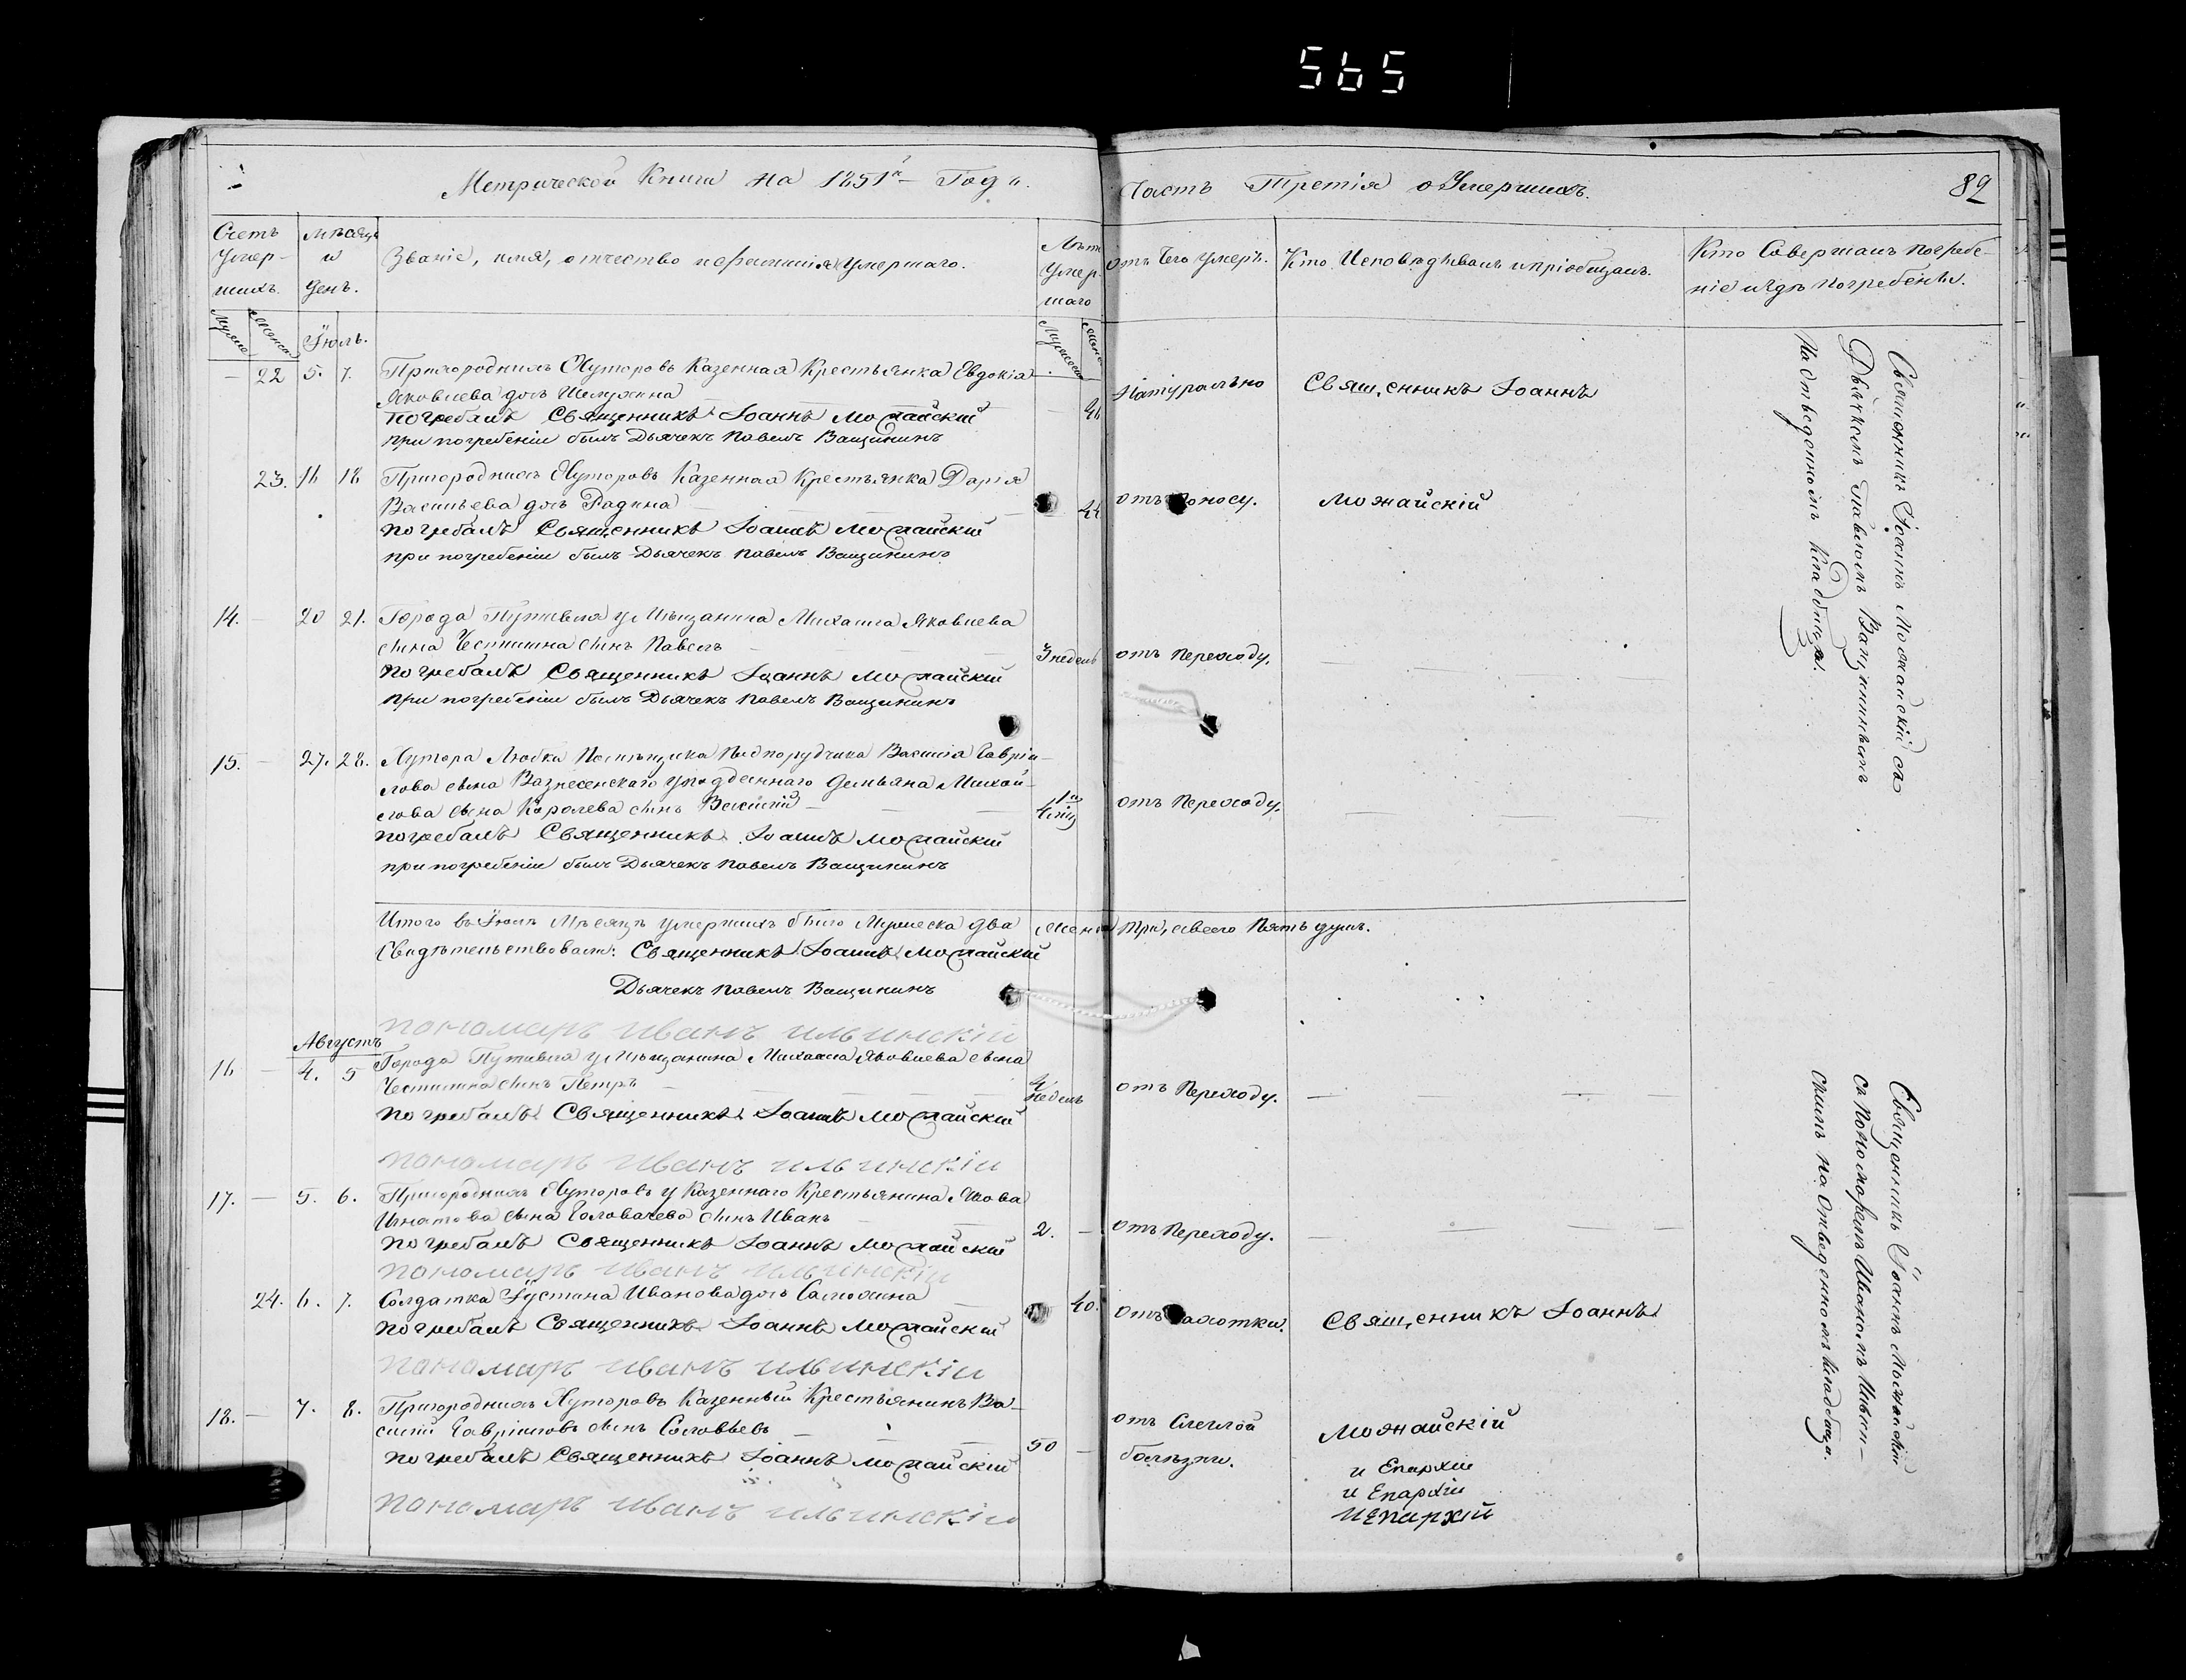 565
Метрической Книги на 1851й Годъ.
Часть Третія о Умершихъ.
89
Счетъ Умер-шихъ.
Мѣсяцъ и День.
Званіе, имя, отчество и фамилія Умершаго.
Лѣта Умер-шаго
Отъ Чего умеръ.
Кто Исповѣдывалъ и пріобщалъ.
Кто Совершалъ погребе-
ніе и гдѣ погребенъ.
Мужеска Женска
Іюль.
Мужеска Женска
22 5. 7. Пригородныхъ Хуторовъ Казенная Крестьянка Евдокія
Яковлева дочь
Погребалъ Священникъ Іоаннъ Можайскій
при погребеніи былъ Дьячекъ Павелъ Ващининъ
Натурально
Священникъ Іоаннъ
23. 16 18 Пригородныхъ Хуторовъ Казенная Крестьянка Дарія
Васильева дочь Радина
44
погребалъ Священникъ Іоаннъ Можайскій
при погребеніи былъ Дьячекъ Павелъ Ващининъ
отъ поносу.
Можайскій
14. 20 21. Города Путивля у Мѣщанина Михаила Яковлева
сына сынъ Павелъ
3 недель
погребалъ Священникъ Іоаннъ Можайскій
при погребеніи былъ Дьячекъ Павелъ Ващининъ
отъ Переходу.
15. 27. 28. Хутора Любки Помѣщика Подпоручика Василія Гаврiи-
лова сына Вознесенскаго Михай-
лова сына Королева сынъ Василій
погребалъ Священникъ Іоаннъ Можайскій
при погребеніи былъ Дьячекъ Павелъ Ващининъ
отъ Переходу.
Священникъ Іоаннъ Можайскій съ
Дьячкомъ Павломъ Ващининымъ
На отведенномъ кладбищѣ.
Итого въ Іюлѣ Мѣсяцѣ умершихъ было Мужеска два Женска три, а всего Пять душъ.
Свидѣтельствовали: Священникъ Іоаннъ Можайскій
Дьячекъ Павелъ Ващининъ
пономарь Иванъ Ильинскій
Августъ
16 4. 5 Города Путивля у Мѣщанина Михаила Яковлева сына
сынъ Петръ
4 недель
погребалъ Священникъ Іоаннъ Можайскій
пономарь Иванъ Ильинскій
отъ Переходу.
17. 5. 6. Пригородныхъ Хуторовъ у Казеннаго Крестьянина
Игнатова сына Головачева сынъ Иванъ
2.
погребалъ Священникъ Іоаннъ Можайскій
пономарь Иванъ Ильинскій
отъ Переходу.
24. 6. 7. Солдатка Іустина Иванова дочь
40.
погребалъ Священникъ Іоаннъ Можайскій
пономарь Иванъ Ильинскій
отъ чахотки.
Священникъ Іоаннъ
18. 7. 8. Пригородныхъ Хуторовъ Казенный Крестьянинъ Ва-
силій Гавріиловъ сынъ Соловьевъ
50
погребалъ Священникъ Іоаннъ Можайскій
пономарь Иванъ Ильинскій
отъ
болѣзни.
Можайскій
и Епархіи
и Епархіи
и Епархій
Священникъ Іоаннъ Можайскій
съ Пономаремъ Иваномъ Ильин-
скимъ на Отведенномъ кладбищѣ.